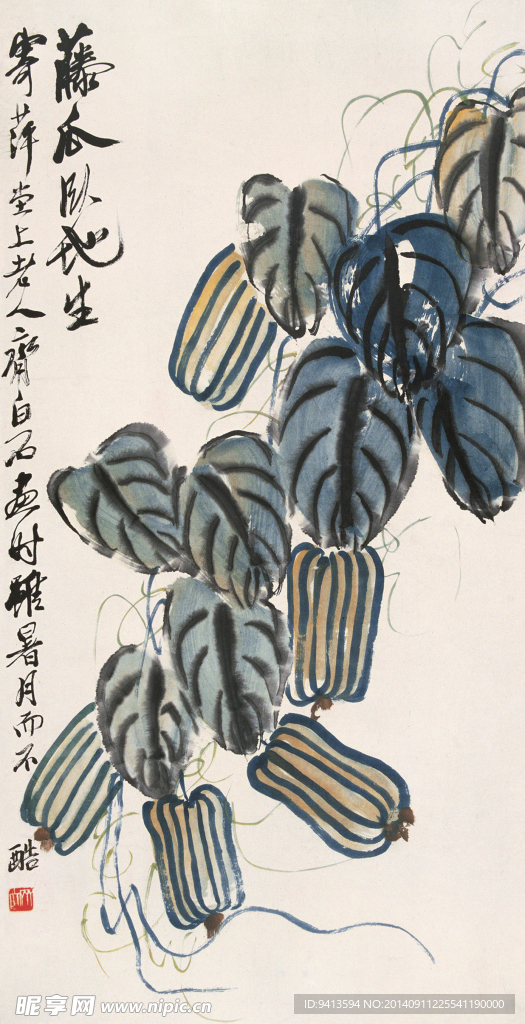 藤瓜卧地生
寄萍堂上老人齊白石畫时雖暑月而不
酷
昵享网 www.nipic.cn
ID:9413594 NO:20140911225541190000